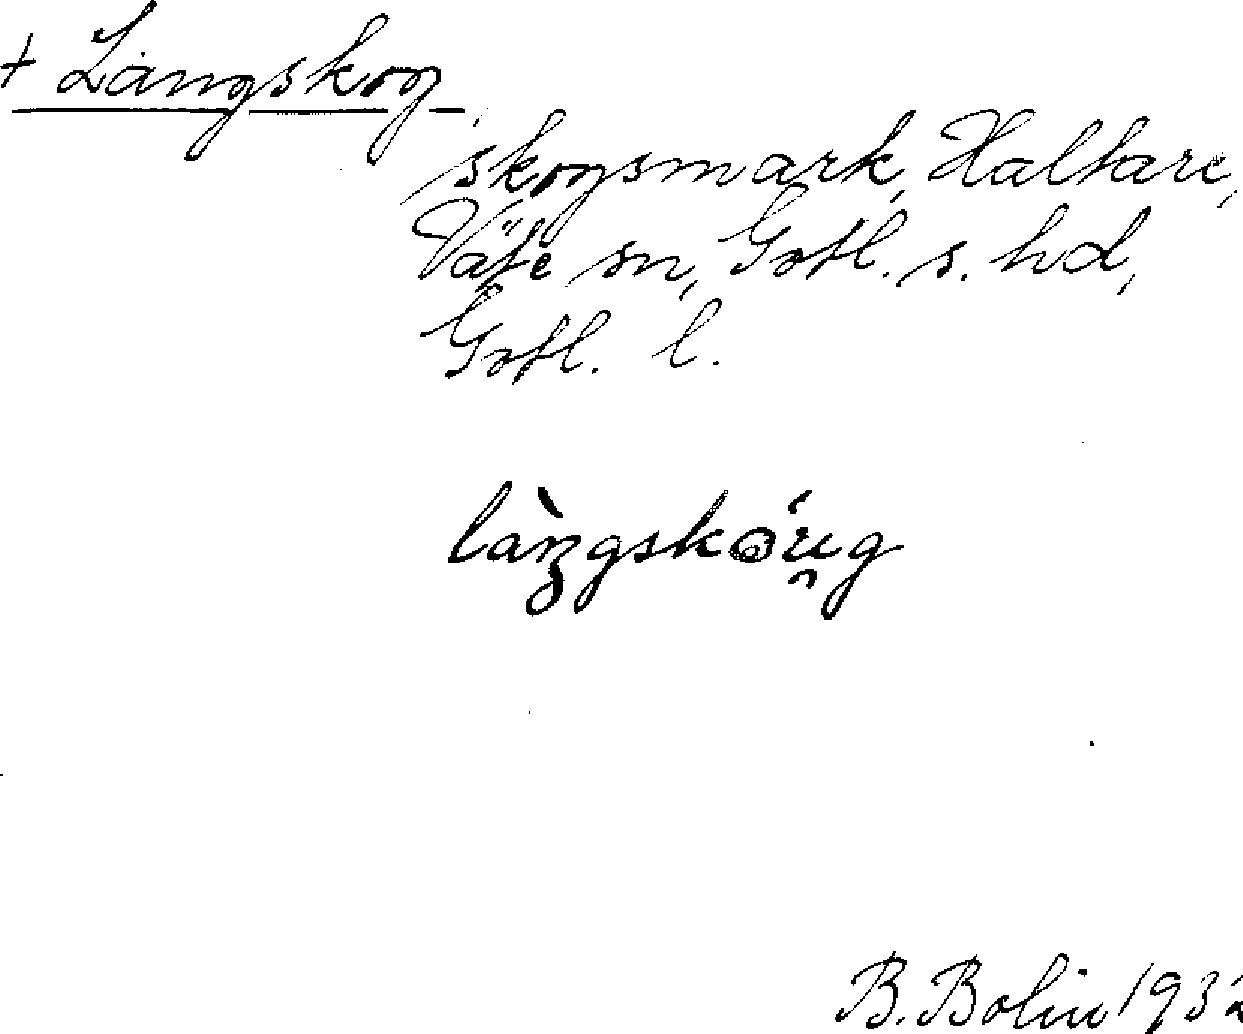 + Långskog
skogsmark, Haltare,
Väte sn, Gotl. s. hd,
Gotl. l.
B. Bolin 1932